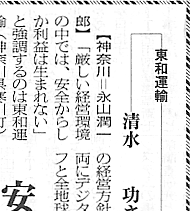 東和運輸
清水 功さ
【神奈川＝永山潤一
郎】「厳しい経営環境
の中では、安全からし
か利益は生まれない」
と強調するのは東和運
輸（神奈川県寒川町）
の経営方針
両にデジタ
フと全地球
安